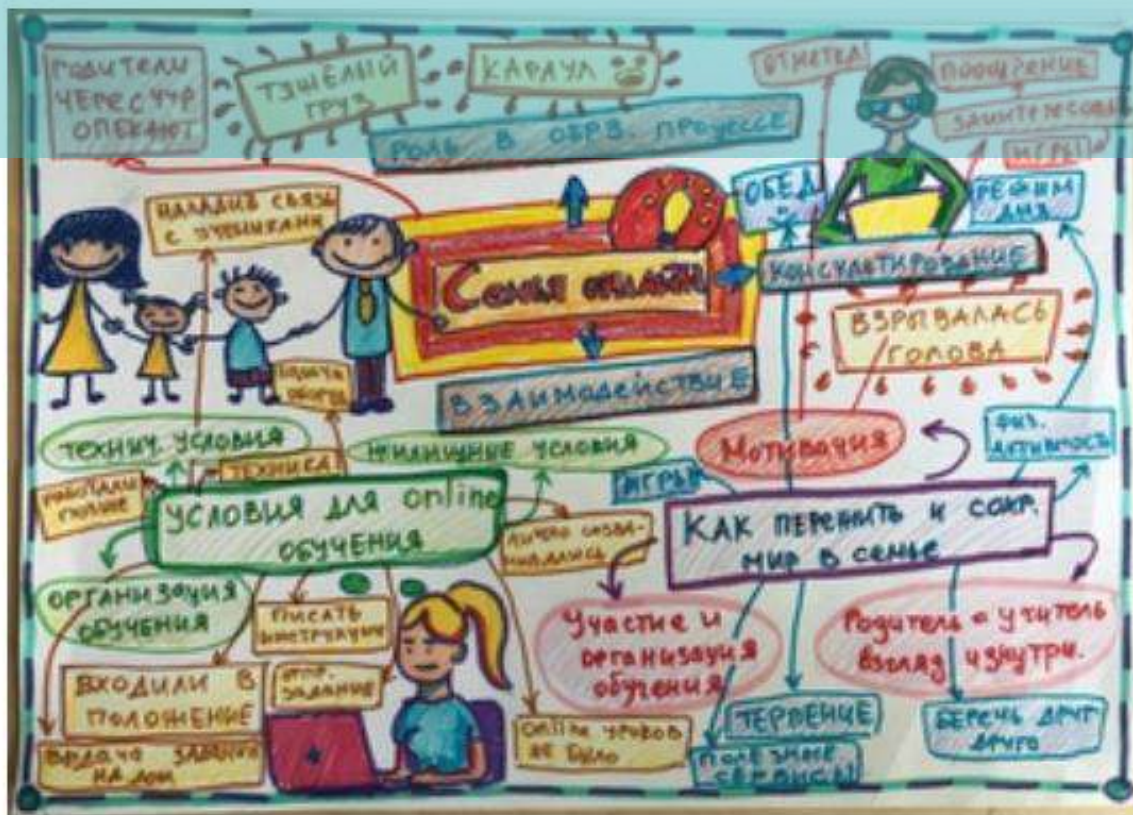 РОДИТЕЛИ
ЧЕРЕСЧУР
ОПЕКАЮТ
ТЯЖЁЛЫЙ
ГРУЗ
КАРАУЛ
РОЛЬ В ОБРЗ. ПРОЦЕССЕ
ПООЩРЕНИЕ
ЗАИНТЕРЕСОВ
ИГРЫ
НАЛАДИВ СВЯЗЬ
С УЧЕНИКАМИ
Семья онлайн
ОБЕД
РЕЖИМ
ДНЯ
КОНСУЛЬТИРОВАНИЕ
ВЗРЫВАЛАСЬ
ГОЛОВА
ВЗАИМОДЕЙСТВИЕ
ТЕХНИЧ. УСЛОВИЯ
ТЕХНИКА
ЖИЛИЩНЫЕ УСЛОВИЯ
МОТИВАЦИЯ
ФИЗ.
АКТИВНОСТЬ
ИГРЫ
РАБОТАЛИ
УСЛОВИЯ ДЛЯ online
ОБУЧЕНИЯ
ЛИЧНО СОЗВА-
НИВАЛИСЬ
КАК ПЕРЕЖИТЬ И СОХР.
МИР В СЕМЬЕ
ОРГАНИЗАЦИЯ
ОБУЧЕНИЯ
ПИСАТЬ
ИНСТРУКЦИИ
Участие и
организация
обучения
Родитель = учитель
взгляд изнутри.
ВХОДИЛИ В
ПОЛОЖЕНИЕ
ОТПР.
ЗАДАНИЕ
ВЫДАЧА ЗАДАНИЙ
НА ДОМ
Online УРОКОВ
НЕ БЫЛО
ТЕРПЕНИЕ
ПОЛЕЗНЫЕ
СЕРВИСЫ
БЕРЕЧЬ ДРУГ
ДРУГА